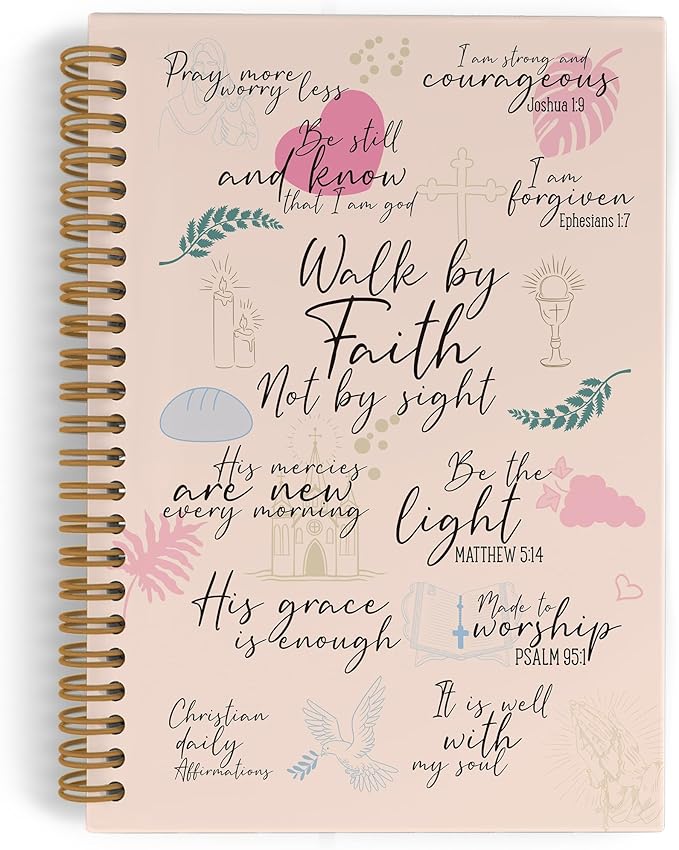 Pray more
worry less
I am strong and
courageous
Joshua 1:9
Be still
and know
that I am god
I am
forgiven
Ephesians 1:7
Walk by
Faith
Not by sight
His mercies
are new
every morning
Be the
light
MATTHEW 5:14
His grace
is enough
Made to
worship
PSALM 95:1
Christian
daily
Affirmations
It is well
with
my soul